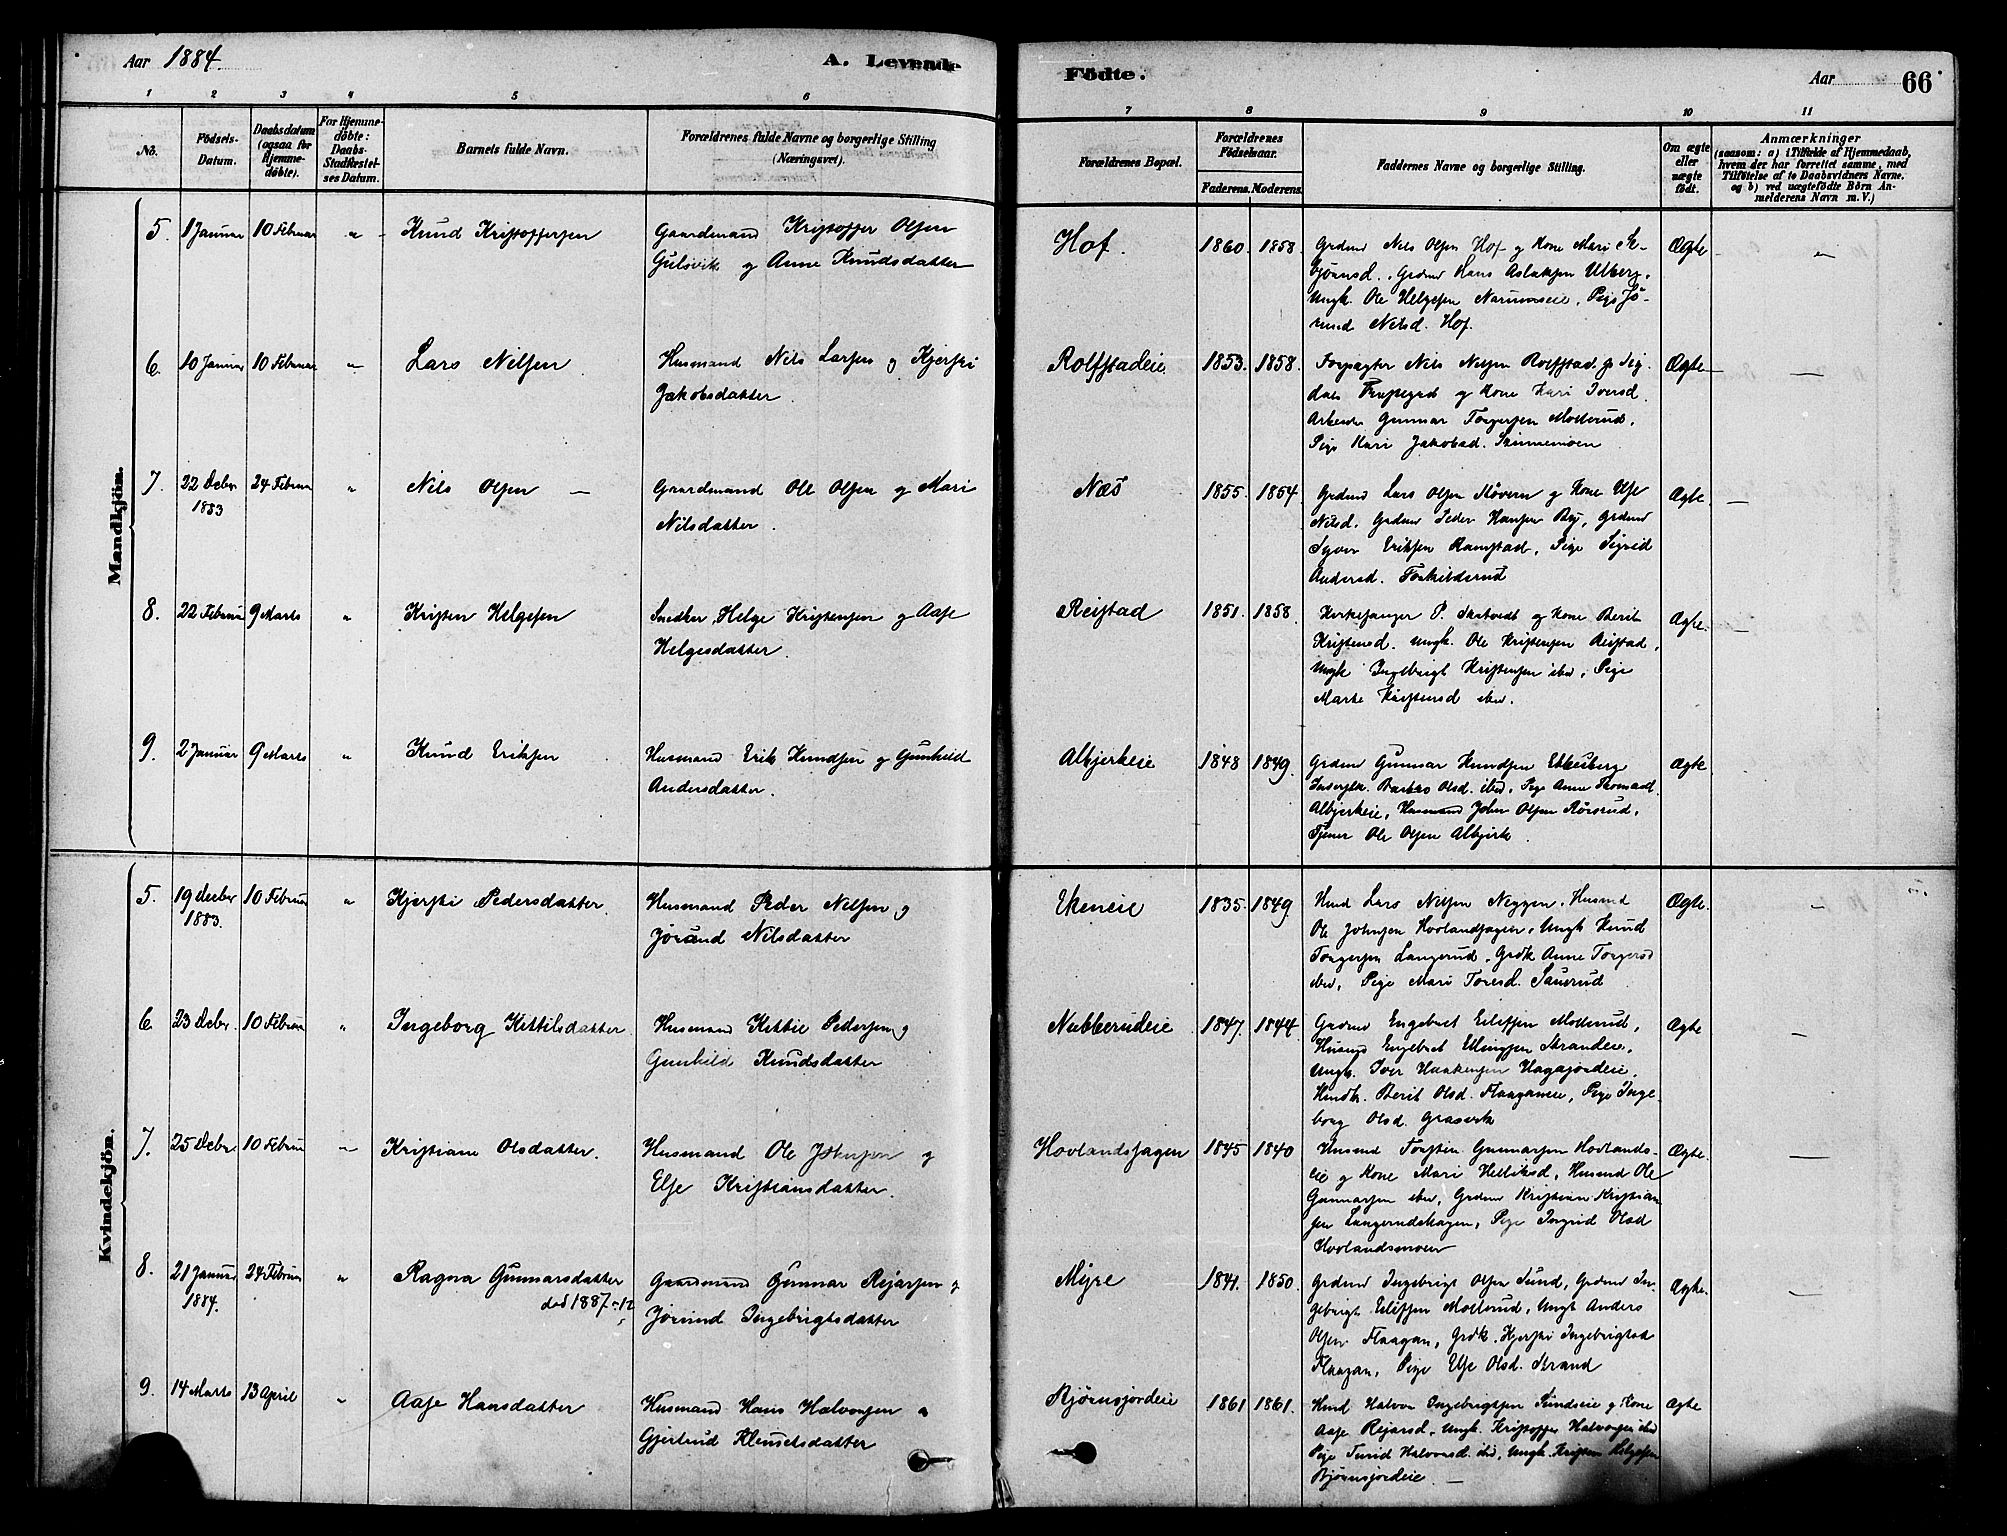 Aar 1884.
A. Levende Födte.
Aar 66
1 2 3 4 5 6 7 8 9 10 11
No.
Födsels-Datum.
Daabsdatum (ogsaa for Hjemme-döbte).
For Hjemme-döbte: Daabs-Stadfæstel-ses Datum.
Barnets fulde Navn.
Forældrenes fulde Navne og borgerlige Stilling (Næringsvei).
Forældrenes Bopæl.
Forældrenes Födselsaar.
Faderens. Moderens.
Faddernes Navne og borgerlige Stilling.
Om ægte eller uægte födt.
Anmærkninger
(saasom: a) i Tilfælde af Hjemmedaab,
hvem der har forrettet samme, med
Tilföielse af to Daabsvidners Navne,
og b) ved uægtefödte Börn An-
melderens Navn m. V.)
Mandkjön.
5. 1 Januar 10 Februar " Knud Kristoffersen
Gaardmand Kristoffer Olsen
Gulsvik og Anne Knudsdatter
Hof. 1860. 1858.
Grdmd Nils Olsen Hof og Kone Mari
Grdmd Hans Aslaksen Ulberg,
Ungk. Ole Helgesen Narumseie, Pige Jø-
rund Nilsd. Hof.
Ægte
6. 10 Januar 10 Februar " Lars Nilsen
Husmand Nils Larsen og Kjersti
Jakobsdatter.
Rolfstadeie 1853. 1858.
Forpagter Nils Nilsen Rolfstad
og Kone Kari Iversd.
Arbeider Gunnar Torgersen Mollerud,
Pige Kari Jakobsd.
Ægte
7. 22 Decbr 1883 24 Februar " Nils Olsen
Gaardmand Ole Olsen og Mari
Nilsdatter.
Næs 1855. 1854.
Grdmd Lars Olsen og Kone
Nilsd. Grdmd Peder Hansen By, Grdmd
Syver Eriksen Ramstad, Pige Sigrid
Andersd. Torkilderud
Ægte
8. 22 Februar 9 Marts " Kristen Helgesen
Snedker Helge Kristensen og Aase
Helgesdatter.
Reistad 1851. 1858.
Kirkesanger P. Skatvedt og Kone Berit
Kristensd. Ungk. Ole Kristensen Reistad,
Ungk Ingebrigt Kristensen ibd, Pige
Marte Kristensd ibd.
Ægte.
9. 2 Januar 9 Marts " Knud Eriksen
Husmand Erik Knudsen og Gunhild
Andersdatter.
Albjerkeie 1848 1849.
Grdmd Gunnar Knudsen
Olsd. ibd, Pige Anne
Albjerkeie, Husmand John Olsen Rørsrud,
Tjener Ole Olsen Albjerk.
Ægte
Kvindekjön.
5. 19 Decbr 1883. 10 Februar " Kjersti Pedersdatter.
Husmand Peder Nilsen og
Jørand Nilsdatter
Ekeneie 1835. 1849.
Lars Nilsen Neggen, Husmd
Ole Johnsen Hovlandsjagen, Ungk Knud
Torgersen Langerud, Grdk Anne Torgersd
ibd, Pige Mari Toresd. Saurud
Ægte.
6. 23 Decbr. 10 Februar " Ingeborg Kittilsdatter.
Husmand Kittil Pedersen og
Gunhild Knudsdatter
Nubberudeie 1847. 1844
Grdmd Engebret Eilifsen Mollerud,
Engebret Ellingsen Strandeie,
Ungk. Iver Haakensen Hagajordeie,
Berit Olsd. Flaaganeie, Pige Inge-
borg Olsd.
Ægte
7. 25 Decbr. 10 Februar " Kristiane Olsdatter.
Husmand Ole Johnsen og
Else Kristiansdatter.
Hovlandsjagen 1845 1840
Husmd Torstein Gunnarsen Hovlands-
eie og Kone Mari Helliksd, Husmd Ole
Gunnarsen ibd, Grdmd Kristian Kristian-
sen Langerudshagen, Pige Ingrid Olsd
Hovlandsmoen
Ægte.
8. 21 Januar 1884. 24 Februar " Ragna Gunnarsdatter
død 1887
Gaardmand Gunnar Rejarsen og
Jørund Ingebrigtsdatter
Myre 1841. 1850
Grdmd Ingebrigt Olsen Sund, Grdmd In-
gebrigt Eilifsen Mollerud, Ungk Anders
Olsen Flaagan, Grdk. Kjersti Ingebrigtsd
Flaagan, Pige Else Olsd. Strand
Ægte.
9. 14 Marts 13 April " Aase Hansdatter
Husmand Hans Halvorsen og
Gjertrud Klemetsdatter
Bjørnsjordeie 1861 1861.
Halvor Ingebrigtsen Sundseie og Kone
Aase Rejarsd, Ungk. Kristoffer Halvorsen ibd
Pige Turid Halvorsd. ibd, Ungk. Kristen Helgesen
Bjørnsjordeie
Ægte